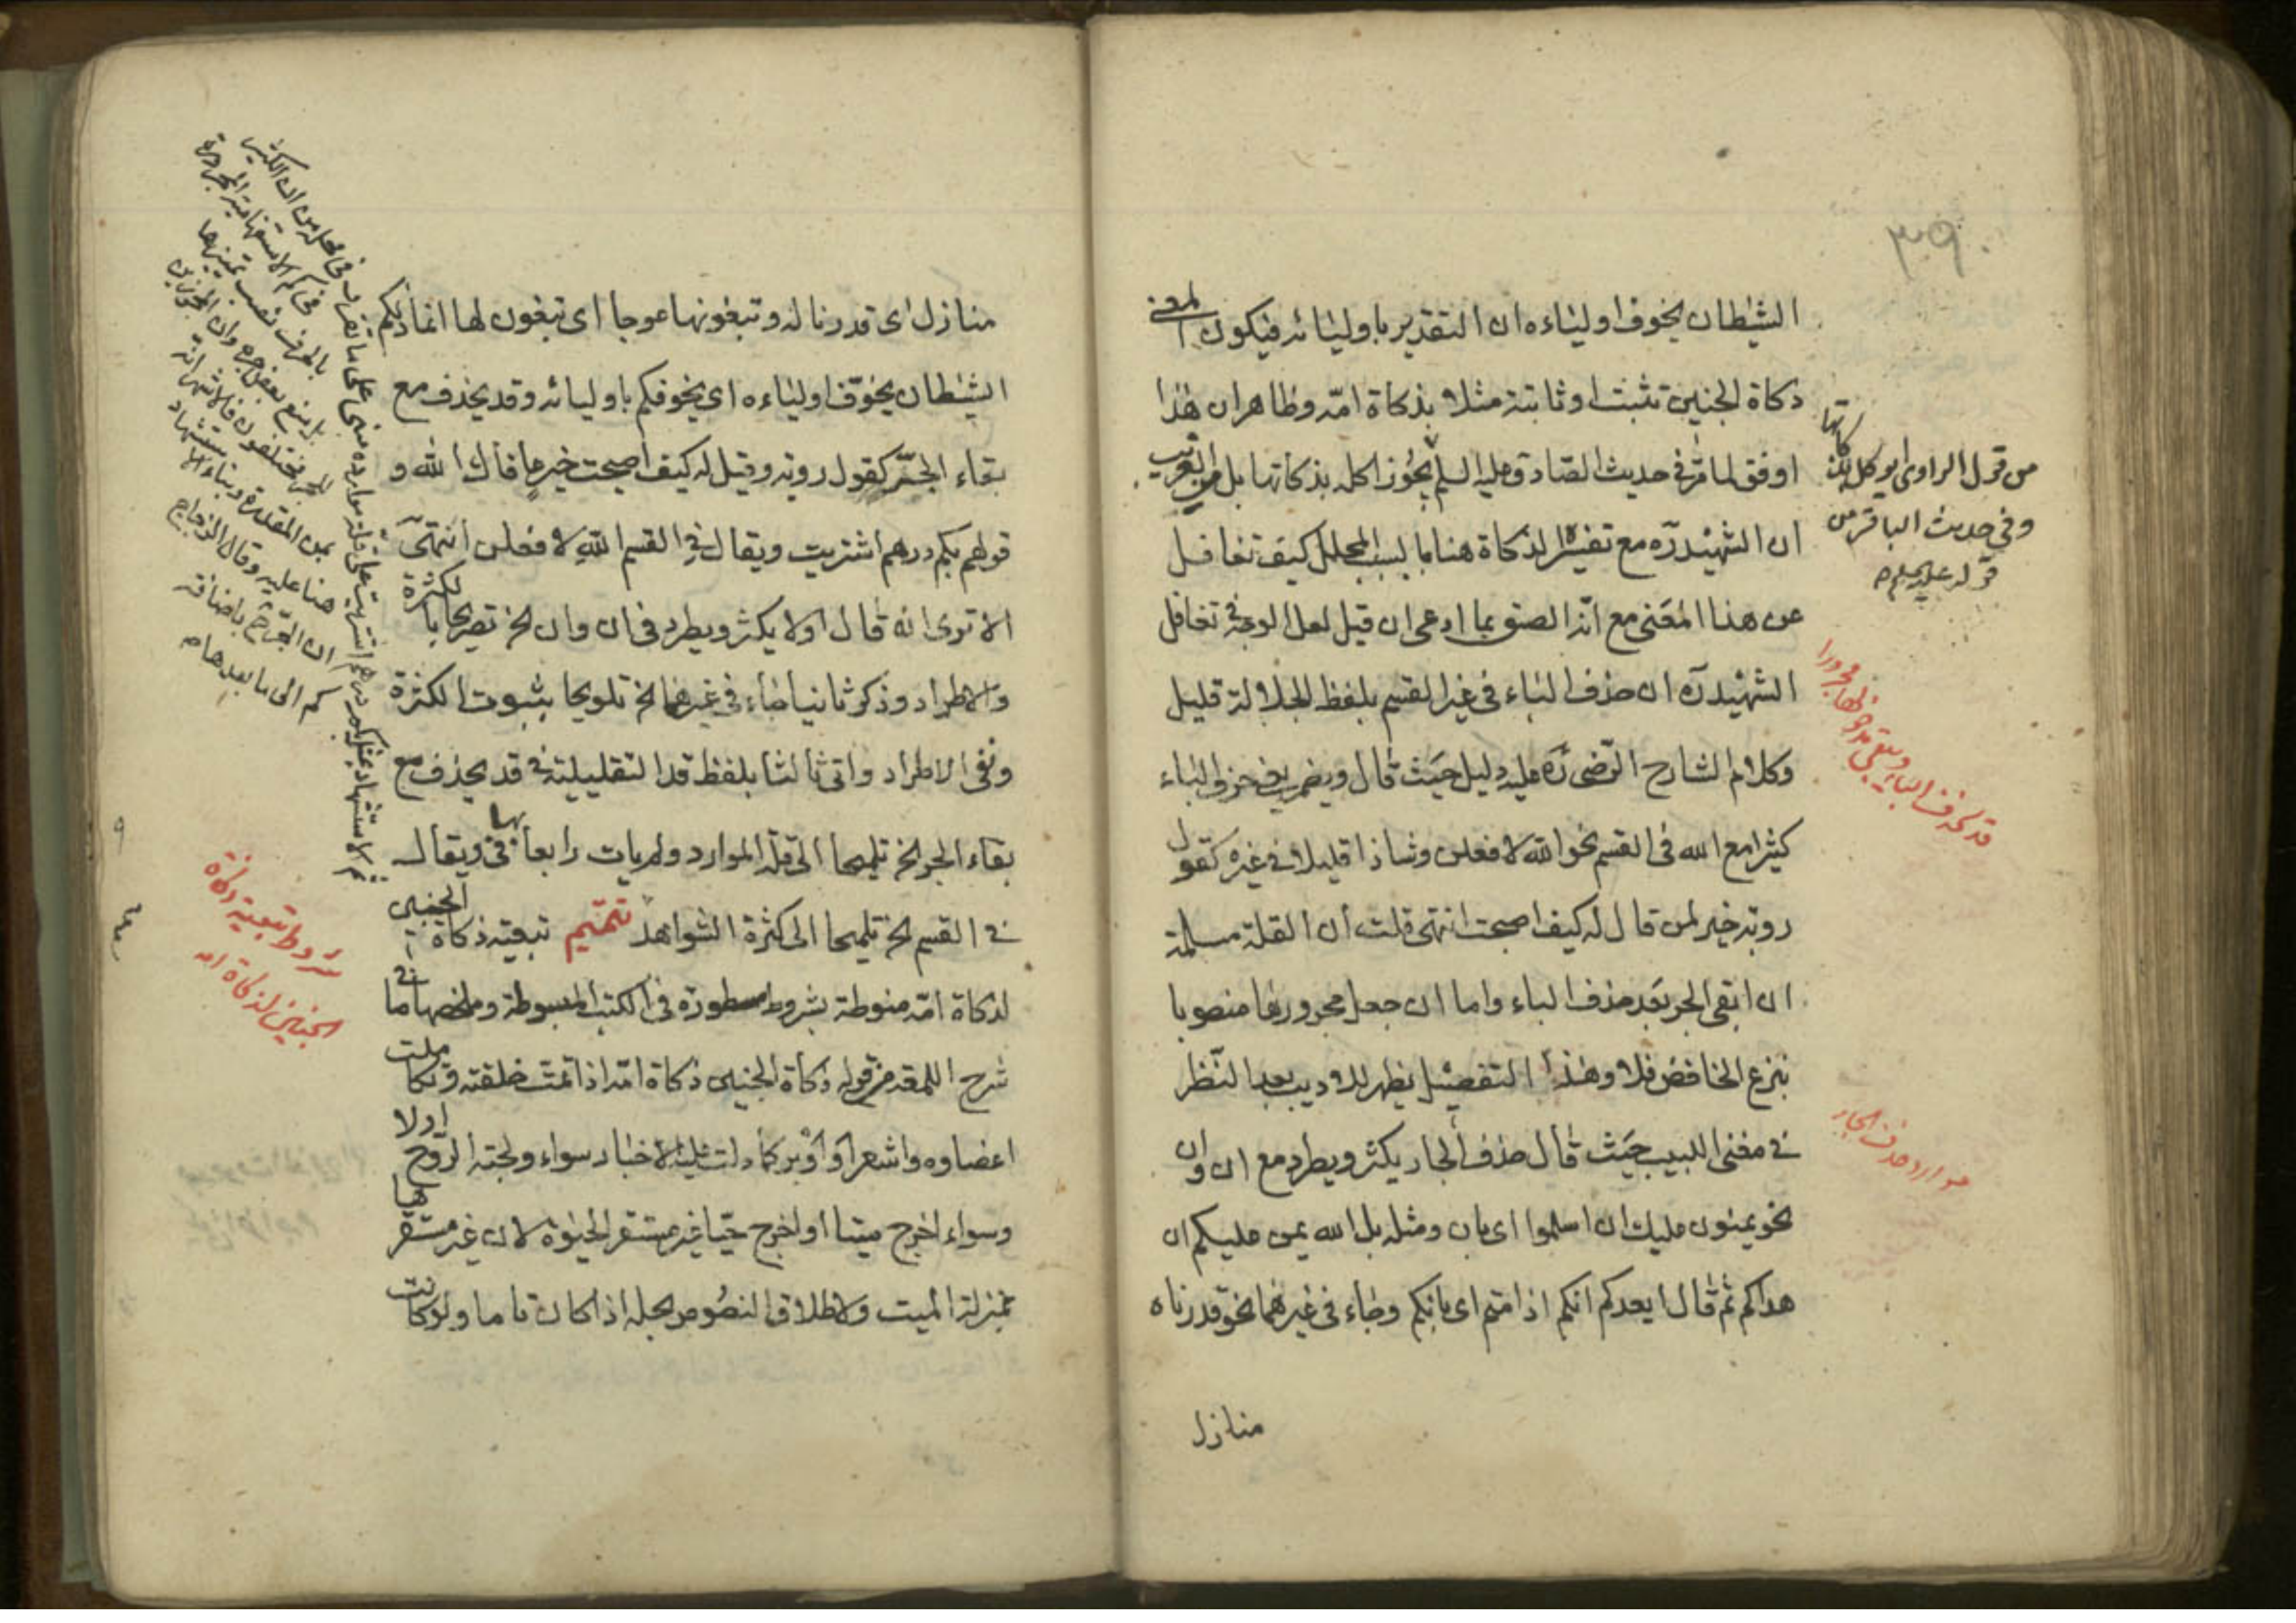 ٣٩٠
الشيطان يخوف اولياءه ان التقدير باوليائه فيكون المعنى
ذكاة الجنين تثبت او ثابتة مثلا بذكاة امّه وظاهر ان هذا
اوفق لما مرّ في حديث الصادق عليه السلم يجُوز اكله بذكاتها بل من الغريب
ان الشهيد ره مع تفسيره الذكاة هنا بالسبب المحلل كيف تغافل
عن هذا المعنى مع انّه الصق بما ادعى ان قيل لعل الوجه في تغافل
الشهيد ره ان حذف الباء في غير القسم بلفظ الجلالة قليل
وكلام الشارح الرّضي ره عليه دليل حيث قال ويضمر حرف الباء
كثيرا مع الله في القسم نحو الله لافعلن وشاذا قليلا في غيره كقول
روبه خير لمن قال له كيف اصبحت انتهى قلت ان القلة مسلمة
ان ابقى الجر بعد حذف الباء واما ان جعل مجرورها منصوبا
بنزع الخافض فلا وهذا التفصيل يظهر للاديب بعد النّظر
في مغنى اللبيب حيث قال حذف الجار يكثر ويطرد مع ان وان
نحو يمنون عليك ان اسلموا اى بان ومثله بل الله يمن عليكم ان
هداكم ثم قال ايعدكم انكم اذا متم اى بانكم وجاء في غيرهما نحو قدرناه
منازل
من قول الراوى ايوكل بذكاتها
وفي حديث الباقر من
قوله عليه السلم
قد يحذف الباء ويبقى مدخولها مجرورا
موارد حذف الجار
منازل اى قدرنا له وتبغونها عوجا اى تبغون لها انما ذلكم
الشيطان يخوّف اولياءه اى يخوفكم باوليائه وقد يحذف مع
بقاء الجرّ كقول روبه وقيل له كيف اصبحت خيرٍ عافاك الله و
قولهم بكم درهم اشتريت ويقال في القسم اللهِ لافعلن انتهى
الا ترى انه قال اولا يكثر ويطرد في ان وان الخ تصريحا بالكثرة
والاطراد وذكر ثانيا جاء في غيرهما الخ تلويحا بثبوت الكثرة
ونفى الاطراد واتى ثالثا بلفظ قد التقليلية في قد يحذف مع
بقاء الجر الخ تلميحا الى قلة الموارد ولم يات رابعا بها في ويقال
في القسم الخ تلميحا الى كثرة الشواهد تتميم تبعية ذكاة الجنين
لذكاة امّه منوطة بشروط مسطورة في الكتب المبسوطة وملخصها ما في
شرح اللمعة من قوله ذكاة الجنين ذكاة امّه اذا تمت خلقته وتكاملت
اعضاوه واشعر او اوبر كما دلت عليه الاخبار سواء ولجته الروح اولا
وسواء اخرج ميتا او اخرج حيّا غير مستقر الحيوة لان غير مستقرها
بمنزلة الميت ولاطلاق النصُوص بحله اذا كان تاما ولو كانت
شروط تبعية ذكاة
الجنين لذكاة امه
هنا عليه وقال الزجاج
ان الجرّ بكم باضافة
كم الى ما بعدها